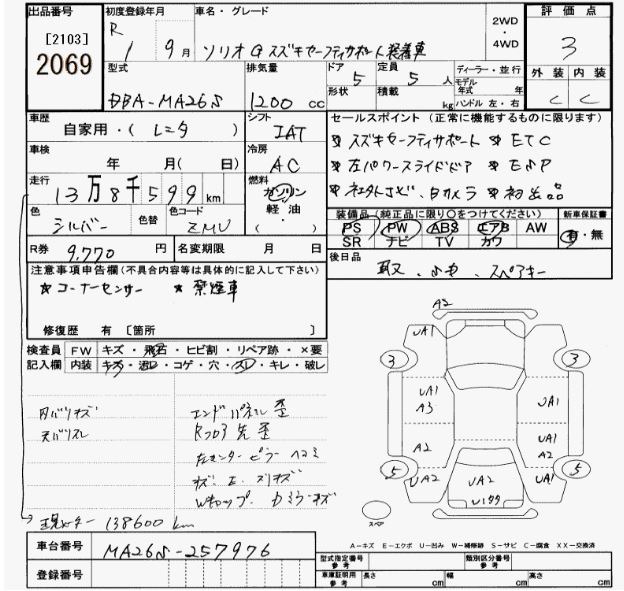 出品番号 初度登録年月 車名・グレード 2WD・4WD 評価点
[2103] R 1年 9月 ソリオG スズキセーフティサポート装着車 3
2069
型式 排気量 ドア 5 定員 5人 ディーラー・並行 外装 内装
DBA-MA26S 1200cc 形状 積載 kg モデル年式 年式 ハンドル 左・右 C C
車歴 シフト セールスポイント (正常に機能するものに限ります)
自家用・(レンタ) IAT ★スズキセーフティサポート ★ETC
車検 冷房
年 月 (日) AC ★左パワースライドドア ★ESP
走行 燃料
13万8千599km ガソリン ★社外ナビ、Bカメラ ★初出品
軽油・( )
色 色替 色コード 装備品 (純正品に限り○をつけてください) 新車保証書
シルバー ZMU PS PW ABS エアB AW 有・無
SR ナビ TV カワ
R券 9,770円 名変期限 月 日 後日品
注意事項申告欄(不具合内容等は具体的に記入して下さい) 取、ホキ、スペアキー
★コーナーセンサー ★禁煙車
修復歴 有 [箇所 ]
検査員 FW キズ・飛石・ヒビ割・リペア跡・×要
記入欄 内装 キズ・汚レ・コゲ・穴・スレ・キレ・破レ
内バリキズ エンドパネル歪
天バリスレ Rフロア先歪
左センターピラーヘコミ
キズ、エ、スリキズ
Wキャップ、カミラーキズ
現メーター 138600km
A2
UA1
3 3
UA1 A3 UA1
A2 UA1 A2
5 5
UA2 UA2 UA2
U177
スペア
A-キズ E-エクボ U-凹み W-補修跡 S-サビ C-腐食 XX-交換済
車台番号 MA26S-257976
型式指定番号 参考 類別区分番号 参考
登録番号 車庫証明用 参考 長さ cm 幅 cm 高さ cm